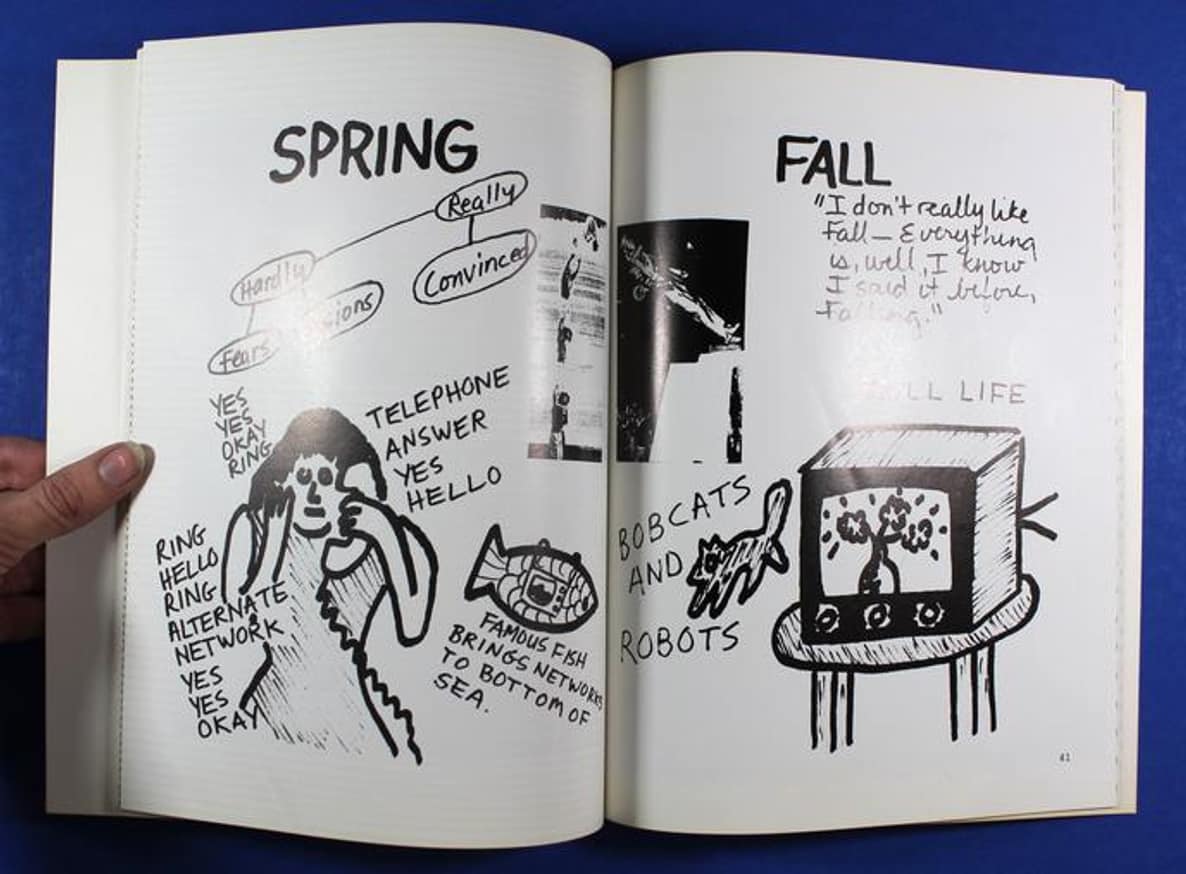 SPRING
Really
Convinced
Hardly
Fears
YES
YES
OKAY
RING
TELEPHONE
ANSWER
YES
HELLO
RING
HELLO
RING
ALTERNATE
NETWORK
YES
YES
OKAY
FAMOUS FISH
BRINGS NETWORKS
TO BOTTOM OF
SEA.
FALL
"I don't really like
Fall — Everything
is, well, I know
I said it before,
Falling."
LIFE
BOBCATS
AND
ROBOTS
41